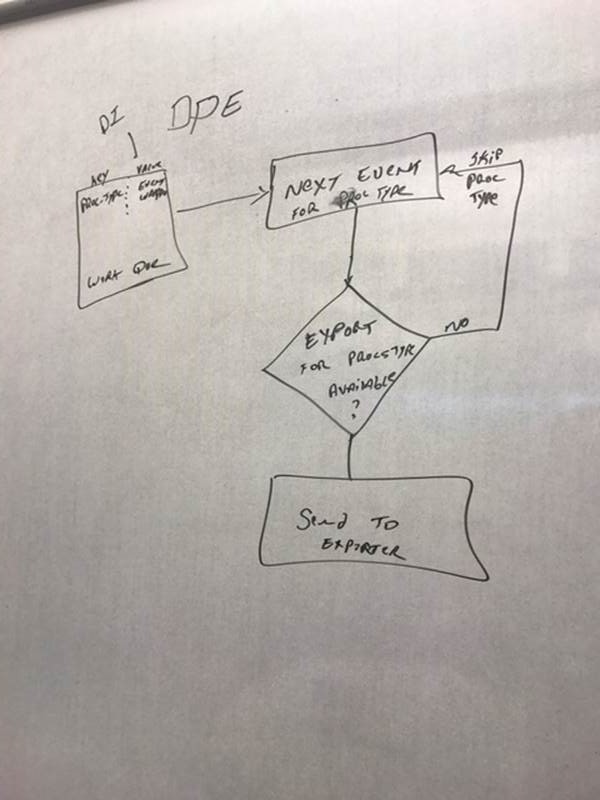 DI
DPE
KEY VALUE
PROC-TYPE EVENT
WORK QUE
NEXT EVENT
FOR PROC TYPE
SKIP
PROC
TYPE
EXPORT
FOR PROCSTYPE
AVAILABLE
?
NO
Send TO
EXPORTER